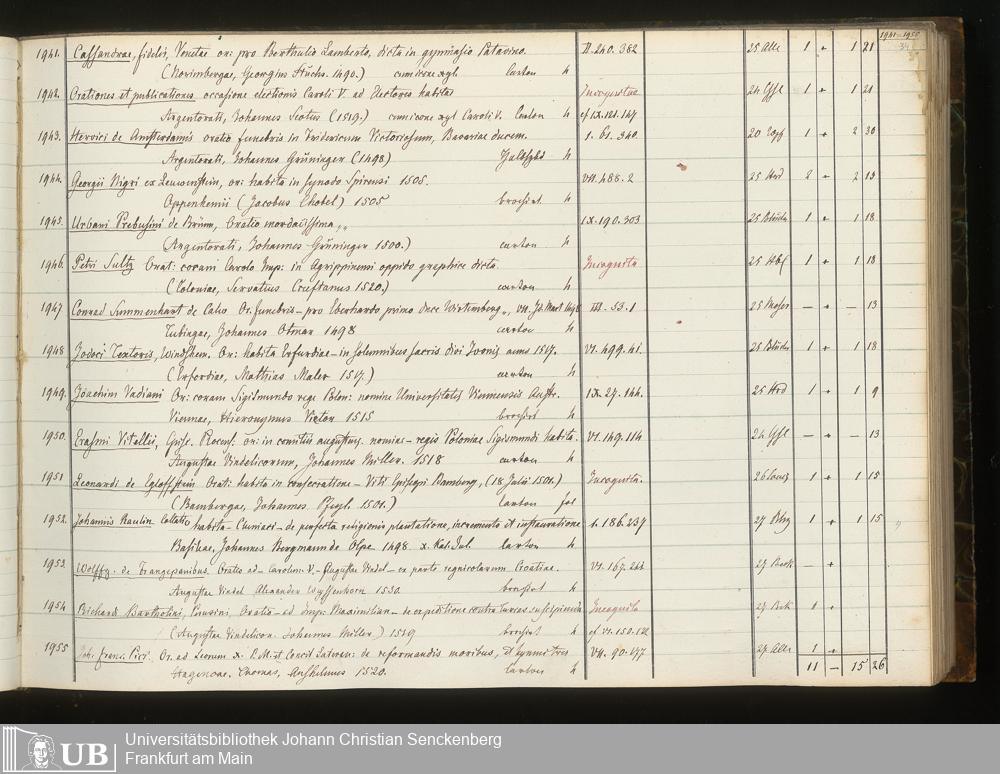 1941–1955
34
1941. Cassandrae, fidelis, Venetae or: pro Berthulio Lamberto, dicta in gymnasio Patavino. II. 240. 362 25 Alle 1 + 1 21
(Norimbergae, Georgius Stuchs. 1490.) cum icone xyl carton 4
1942. Orationes et publicationes occasione electionis Caroli V. ad Electores habitae Incognitae 24 1 + 1 21
Argentorati, Johannes Scotus (1519.) cum icone xyl Caroli V. Carton 4 cf IX. 121. 147
1943. Hervici de Amsterdamis oratio funebris in Fridericum Victoriosum, Bavariae ducem. 1. 61. 340 20 1 + 2 30
Argentorati, Johannes Grüninger (1498) 4
1944. Georgii Nigri ex Leuwenstein, ori habita in synodo Spirensi 1505. VII. 488. 2 25 2 + 2 13
Oppenhemii (Jacobus Chobel) 1505 brochirt. 4
1945. Urbani Prebusini de Brünn, Oratio mordacissima,, IX. 190. 303 25 1 + 1 18
(Argentorati, Johannes Grüninger 1500.) carton 4
1946. Petri Sultz Orat: coram Carolo Imp: in Agrippinensi oppido graphice dicta. Incognita 25 1 + 1 18
(Coloniae, Servatius 1520.) carton 4
1947 Conrad Summenhart de Calw Or. funebris – pro Eberhardo primo duce Wirtemberg,, III. 53. 1 25 Moser — + — 13
Tubingae, Johannes Otmar 1498 carton 4
1948 Jodoci Textoris, Windshem. Or: habita Erfurdiae – in solemnibus sacris divi Ivonis anno 1517. VI. 499. 41. 25 1 + 1 18
(Erfordiae, Matthias Maler 1517.) carton 4
1949. Joachimi Vadiani Or: coram Sigismundo rege Polon: nomine Universitatis Viennensis Austr. IX. 27. 144. 25 1 + 1 9
Viennae, Hieronymus Vietor 1515 brochirt 4
1950. Erasmi Vitellii, Episc. Plocens. or: in comitiis augustens. nomine – regis Poloniae Sigismundi habita. VI. 149. 114 24 — + — 13
Augustae Vindelicorum, Johannes Miller. 1518 carton 4
1951 Leonardi de Egloffstein Orat: habita in consecratione – Viti Episcopi Bamberg, (18 Julii 1501.) Incognita. 26 1 + 1 15
(Bambergae, Johannes Pfeyl. 1501.) carton fol
1952. Johannis Raulin Collatio habita – Cluniaci – de perfecta religionis plantatione, incremento et instauratione 1. 186. 237 27 1 + 1 15
Basileae, Johannes Bergmann de Olpe 1498 x. Kal. Jul. carton 4
1953. Wolffg. de Frangepanibus. Oratio ad – Carolum V. – Augustae Vindel – ex parte regnicolarum Croatiae. VI. 167. 27 — +
Augustae Vindel Alexander Weyssenhorn 1530. brochirt 4
1954 Richardi Bartholini, Perusini, Oratio – ad Imp: Maximilian – de expeditione contra turcas suscipienda Incognita 27 1 +
(Augustae Vindelicor. Johannes Miller.) 1519 brochirt 4 cf. VI. 150.
1955 Joh. Franc. Pici Or. ad Leonem X. P. M. et Concil Lateran: de reformandis moribus, VII. 90. 27 Alle 1 +
Hagenoae, Thomas, Anshelmus 1520. carton 4 11 — 15 26
UB Universitätsbibliothek Johann Christian Senckenberg
Frankfurt am Main